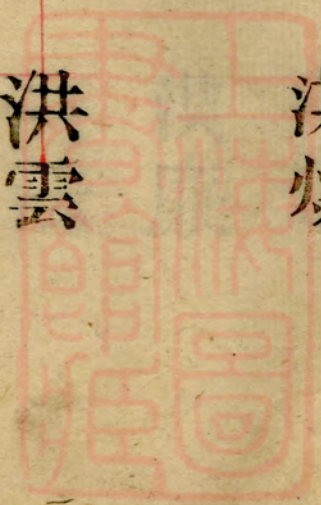 洪雲
上海圖
書館藏